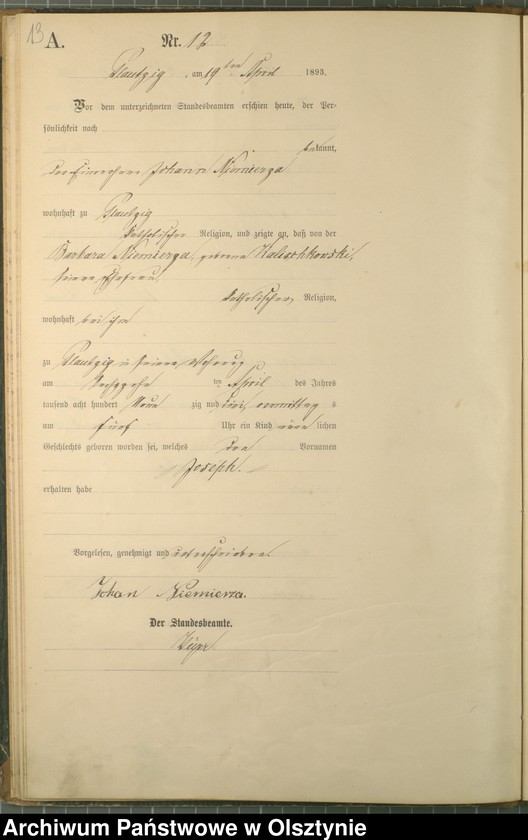 13 A. Nr. 12
Plautzig, am 19ten April 1893.
Vor dem unterzeichneten Standesbeamten erschien heute, der Per-
sönlichkeit nach
bekannt,
der Johann Niemierza
wohnhaft zu Plautzig
katholischer Religion, und zeigte an, daß von der
Barbara Niemierza, geborne Kalischkowski,
seiner Ehefrau,
katholischer Religion,
wohnhaft bei ihm
zu Plautzig in seiner Wohnung
am Sechszehnten April des Jahres
tausend acht hundert Neun zig und drei, vormittag s
um fünf Uhr ein Kind männlichen
Geschlechts geboren worden sei, welches den Vornamen
Joseph.
erhalten habe
Vorgelesen, genehmigt und unterschrieben.
Johan Niemierza.
Der Standesbeamte.
Archiwum Państwowe w Olsztynie